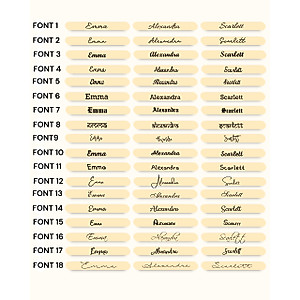 FONT 1 Emma Alexandra Scarlett
FONT 2 Emma Alexandra Scarlett
FONT 3 Emma Alexandra Scarlett
FONT 4 Emma Alexandra Scarlett
FONT 5 Emma Alexandra Scarlett
FONT 6 Emma Alexandra Scarlett
FONT 7 Emma Alexandra Scarlett
FONT 8 Emma Alexandra Scarlett
FONT9 Emma Alexandra Scarlett
FONT 10 Emma Alexandra Scarlett
FONT 11 Emma Alexandra Scarlett
FONT 12 Emma Alexandra Scarlet
FONT 13 Emma Alexandra Scarlett
FONT 14 Emma Alexandra Scarlett
FONT 15 Emma Alexandra Scarlett
FONT 16 Emma Alexandra Scarlett
FONT 17 Emma Alexandra Scarlett
FONT 18 Emma Alexandra Scarlett